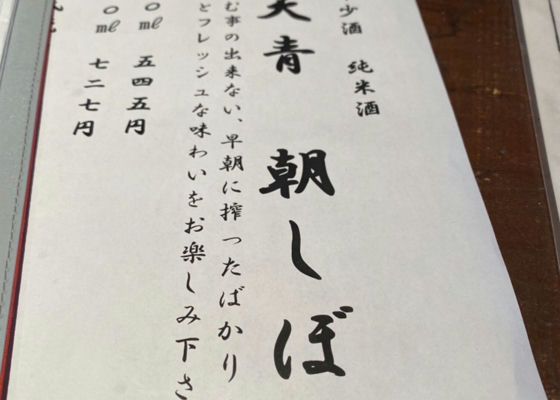 少酒 純米酒
天青 朝しぼ
む事の出来ない、早朝に搾ったばかり
とフレッシュな味わいをお楽しみ下さ
〇㎖ 五四五円
〇㎖ 七二七円